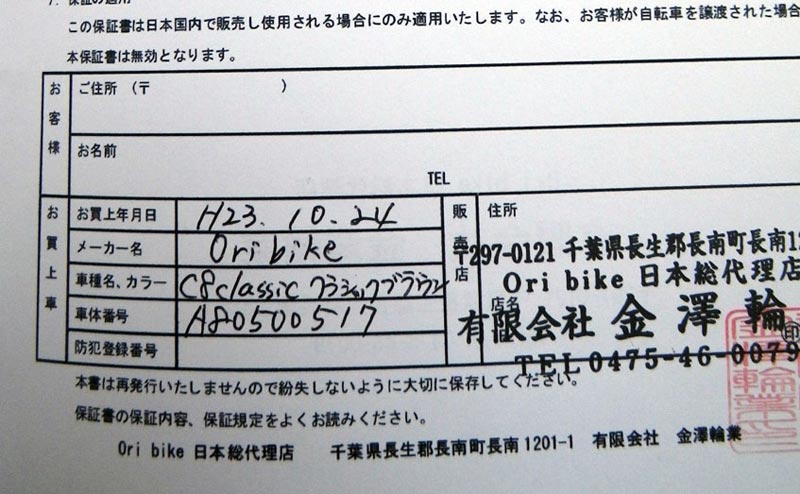 7. 保証の適用
この保証書は日本国内で販売し使用される場合にのみ適用いたします。なお、お客様が自転車を譲渡された場合
本保証書は無効となります。
お客様
ご住所 (〒 )
お名前
TEL
お買上車
お買上年月日 H23.10.24
メーカー名 Ori bike
車種名、カラー C8classic クラシックブラウン
車体番号 A80500517
防犯登録番号
販売店
住所
〒297-0121 千葉県長生郡長南町長南12
Ori bike 日本総代理店
店名
有限会社 金澤輪
印
TEL 0475-46-0079
本書は再発行いたしませんので紛失しないように大切に保存してください。
保証書の保証内容、保証規定をよくお読みください。
Ori bike 日本総代理店 千葉県長生郡長南町長南1201-1 有限会社 金澤輪業